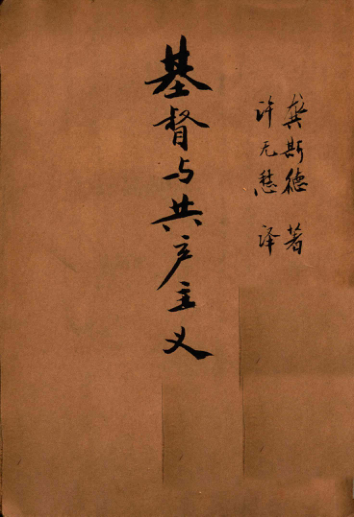 龚斯德 著
许无愁 译
基督与共产主义